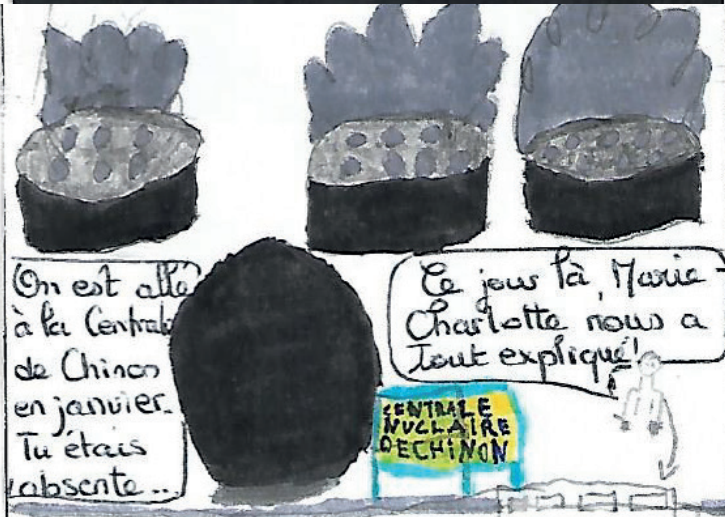 On est allé
à la Centrale
de Chinon
en janvier.
Tu étais
absente...
Ce jour là, Marie-
Charlotte nous a
Tout expliqué!
CENTRALE
NUCLAIRE
DECHINON